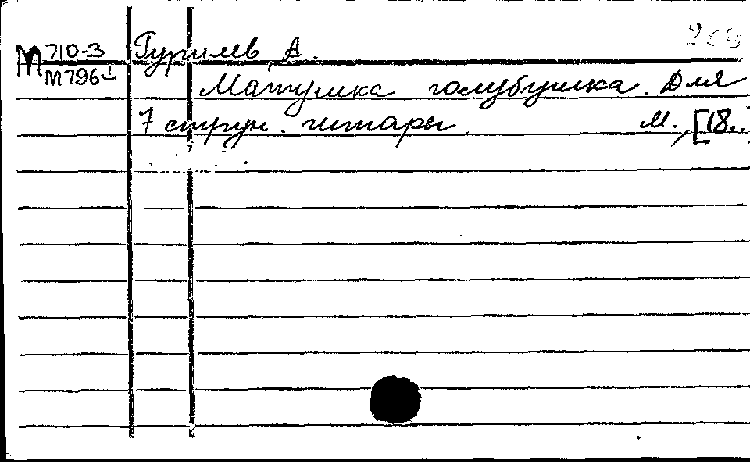 М 710-3
М796
Гурилев А.
Матушка голубушка. Для
7 струн. гитары. М., [18..